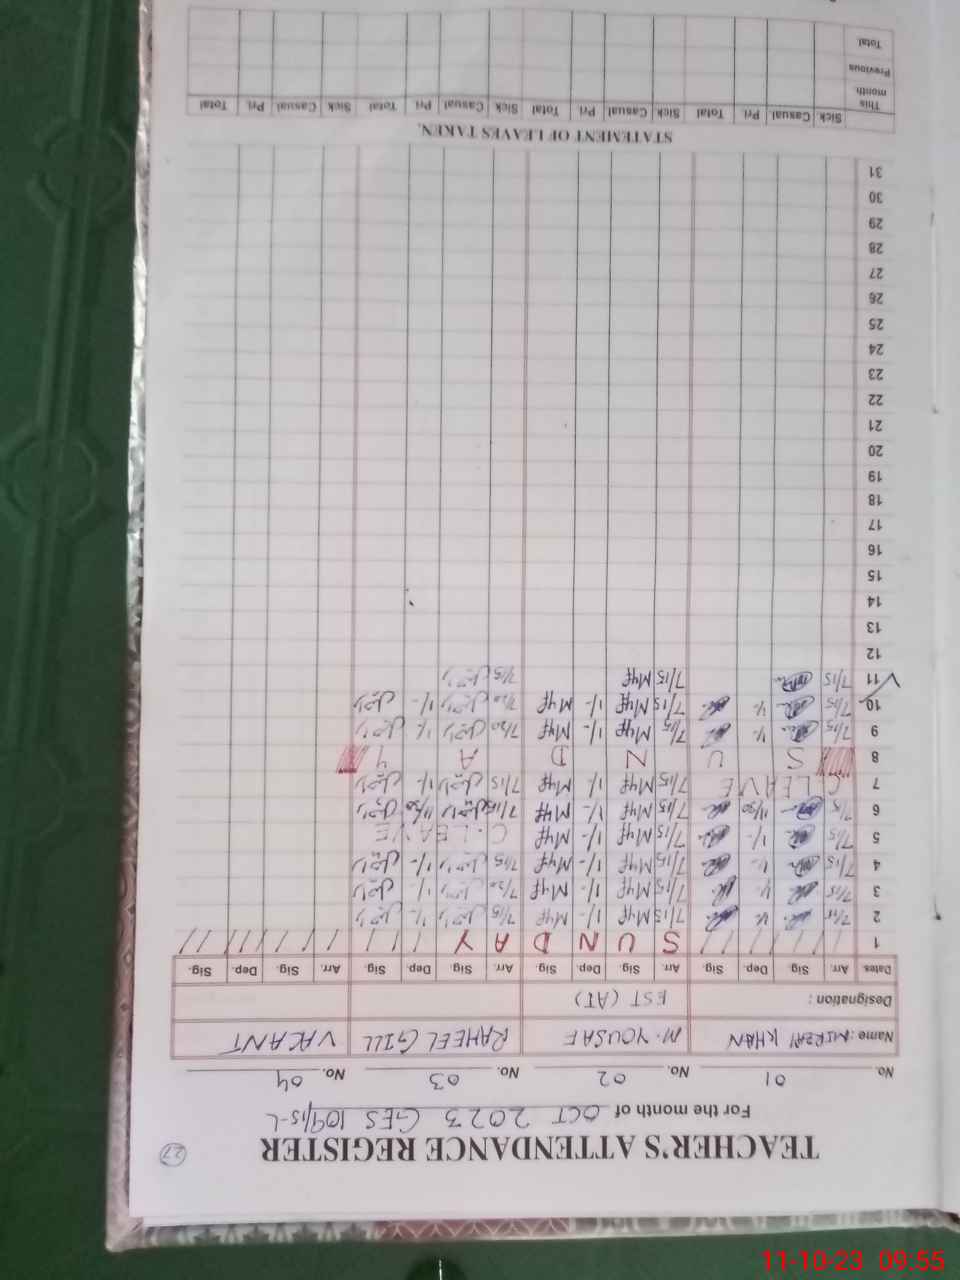 27
TEACHER'S ATTENDANCE REGISTER
For the month of OCT 2023 GES 109/15-L
No. 01 No. 02 No. 03 No. 04
Name: MIRZAY KHAN M. YOUSAF RAHEEL GILL VACANT
Designation: EST (AT)
Dates. Arr. Sig. Dep. Sig. Arr. Sig. Dep. Sig. Arr. Sig. Dep. Sig. Arr. Sig. Dep. Sig.
1 S U N D A Y
2 7/15 7/15 Myf 1/- Myf 7/15
3 7/15 7/15 Myf 1/- Myf 7/20 1/-
4 7/15 7/15 Myf 1/- Myf 7/15 1/-
5 7/15 1/- 7/15 Myf 1/- Myf C-LEAVE
6 7/15 11/30 7/15 Myf 1/- Myf 7/15 11/30
7 C LEAVE 7/15 Myf 1/- Myf 7/15 1/-
8 S U N D A Y
9 7/15 7/15 Myf 1/- Myf 7/20
10 7/15 7/15 Myf 1/- Myf 7/20 1/-
11 7/15 7/15 Myf 7/15
12
13
14
15
16
17
18
19
20
21
22
23
24
25
26
27
28
29
30
31
STATEMENT OF LEAVES TAKEN.
Sick. Casual Pri Total Sick Casual Pri Total Sick Casual Pri Total Sick Casual Pri. Total
This month
Previous
Total.
11-10-23 09:55